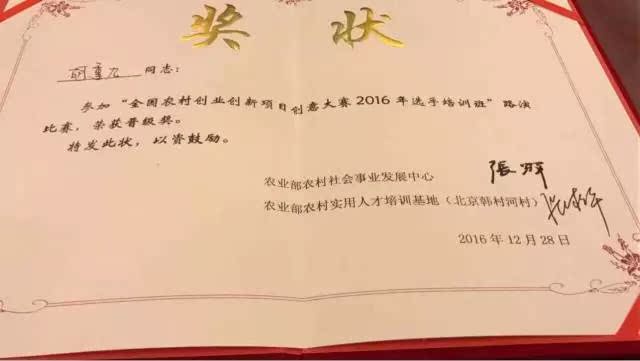 奖 状
同志：
参加“全国农村创业创新项目创意大赛2016年选手培训班”路演
比赛，荣获晋级奖。
特发此状，以资鼓励。
农业部农村社会事业发展中心
农业部农村实用人才培训基地（北京韩村河村）
2016年12月28日